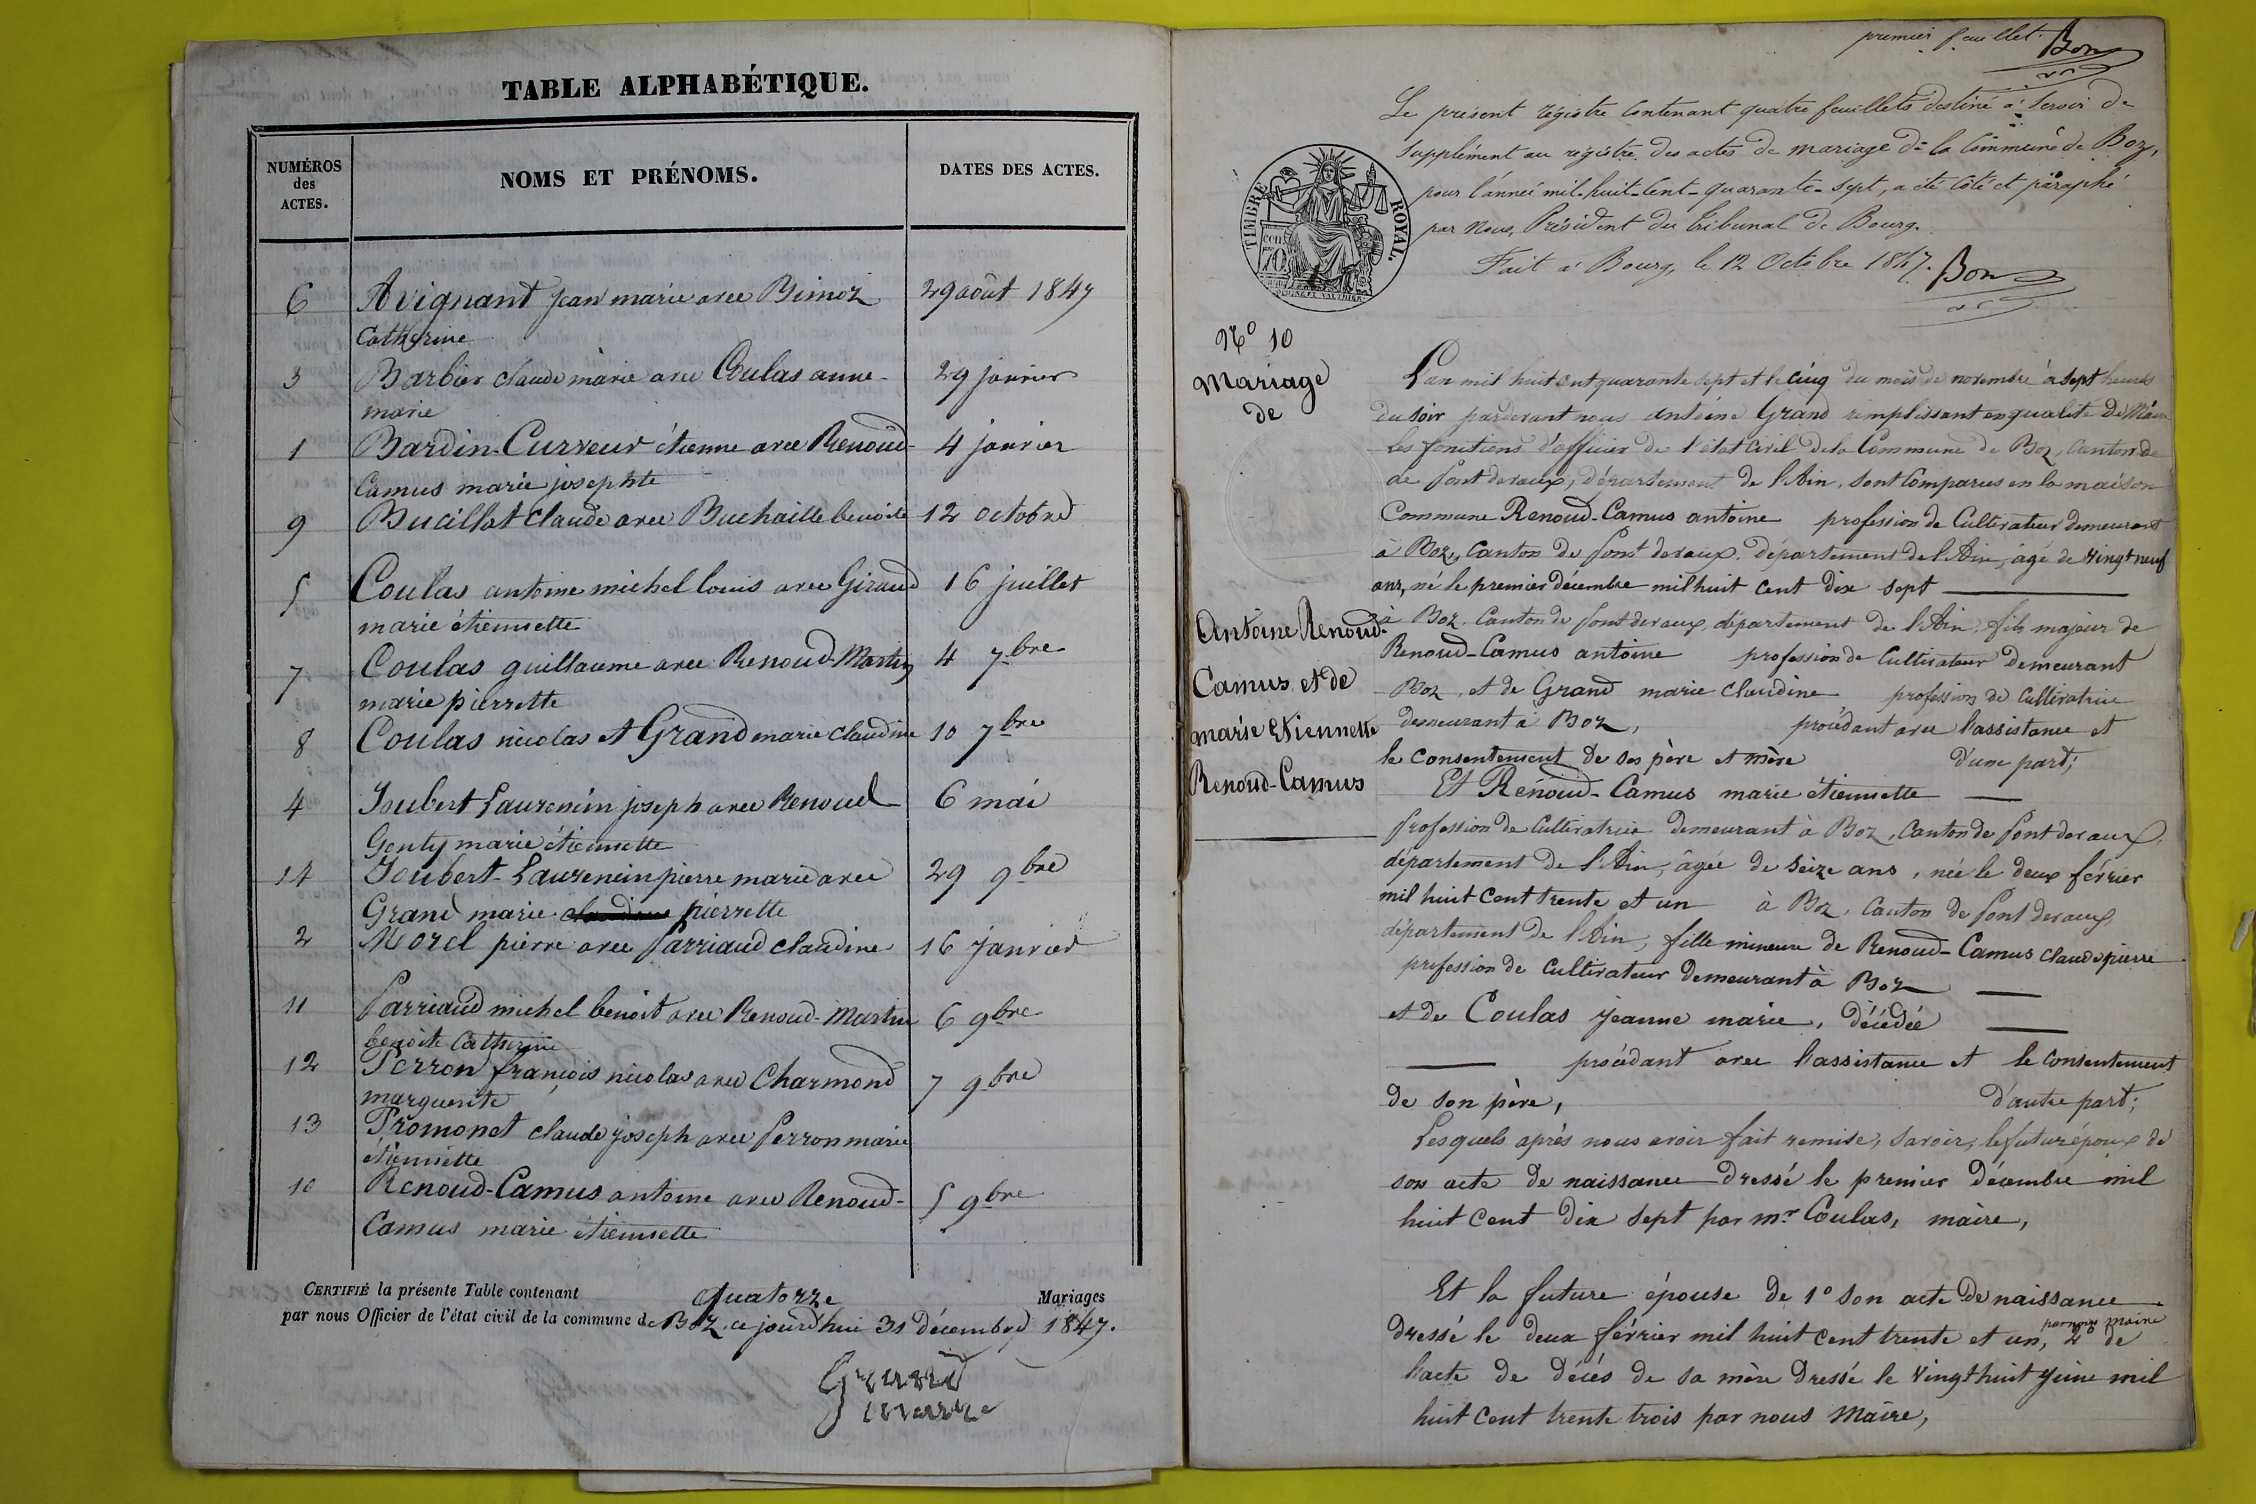 TABLE ALPHABÉTIQUE.
NUMÉROS des ACTES.
NOMS ET PRÉNOMS.
DATES DES ACTES.
6 Avignant Jean marie avec Bimoz 29 août 1847
Catherine
3 Barbier claude marie avec Coulas anne- 29 janvier
marie
1 Bardin-Curveur étienne avec Renoud- 4 janvier
Camus marie josephte
9 Bucillat claude avec Buchaille benoite 12 octobre
5 Coulas antoine michel louis avec Giraud 16 juillet
marie étiennette
7 Coulas guillaume avec Renoud-Martin 4 7bre
marie pierrette
8 Coulas nicolas et Grand marie claudine 10 7bre
4 Joubert Laurencin joseph avec Renoud 6 mai
Genty marie étiennette
14 Joubert-Laurencin pierre marie avec 29 9bre
Grand marie claudine pierrette
2 Morel pierre avec Parriaud claudine 16 Janvier
11 Parriaud michel benoit avec Renoud-Martin 6 9bre
benoite Catherine
12 Perron françois nicolas avec Charmond 7 9bre
marguerite
13 Promonet claude joseph avec Perron marie
étiennette
10 Renoud-Camus antoine avec Renoud- 5 9bre
Camus marie étiennette
CERTIFIÉ la présente Table contenant quatorze Mariages
par nous Officier de l'état civil de la commune de Boz ce jourd'hui 31 décembre 1847.
Grand
maire
premier feuillet. Bon
Le présent régistre Contenant quatre feuillets destiné à servir de
Supplément au régistre des actes de mariage de la Commune de Boz,
pour l'année mil-huit-Cent-quarante-sept, a été Côté et paraphé
par Nous, Président du tribunal de Bourg.
Fait à Bourg, le 12 Octobre 1847. Bon
TIMBRE ROYAL.
70
N° 10
Mariage
de
Antoine Renoud-
Camus et de
marie Etiennette
Renoud-Camus
L'an mil huit cent quarante sept et le cinq du mois de novembre à sept heures
du soir pardevant nous antoine Grand remplissant en qualité de Maire
les fonctions d'officier de l'état civil de la Commune de Boz, Canton de
de Pont devaux, département de l'Ain, sont Comparus en la maison
Commune Renoud-Camus antoine profession de Cultivateur demeurant
à Boz, Canton de Pont devaux, département de l'Ain, âgé de vingt neuf
ans, né le premier décembre mil huit cent dix sept
à Boz, Canton de Pont devaux, département de l'Ain, fils majeur de
Renoud-Camus antoine profession de Cultivateur demeurant
Boz, et de Grand marie claudine profession de Cultivatrice
demeurant à Boz, procédant avec l'assistance et
le consentement de ses père et mère d'une part;
Et Renoud-Camus marie étiennette
Profession de Cultivatrice demeurant à Boz, Canton de Pont devaux,
département de l'Ain, âgée de seize ans, née le deux février
mil huit cent trente et un à Boz, Canton de Pont devaux,
département de l'Ain, fille mineure de Renoud-Camus claude pierre
profession de Cultivateur demeurant à Boz
et de Coulas jeanne marie, décédée
procédant avec l'assistance et le consentement
de son père, d'autre part;
Lesquels après nous avoir fait remise, savoir, le futur époux de
son acte de naissance dressé le premier décembre mil
huit cent dix sept par mr Coulas, maire,
Et la future épouse de 1° son acte de naissance
dressé le deux février mil huit cent trente et un, par nous maire 2° de
l'acte de décés de sa mère dressé le vingt huit juin mil
huit cent trente trois par nous Maire,